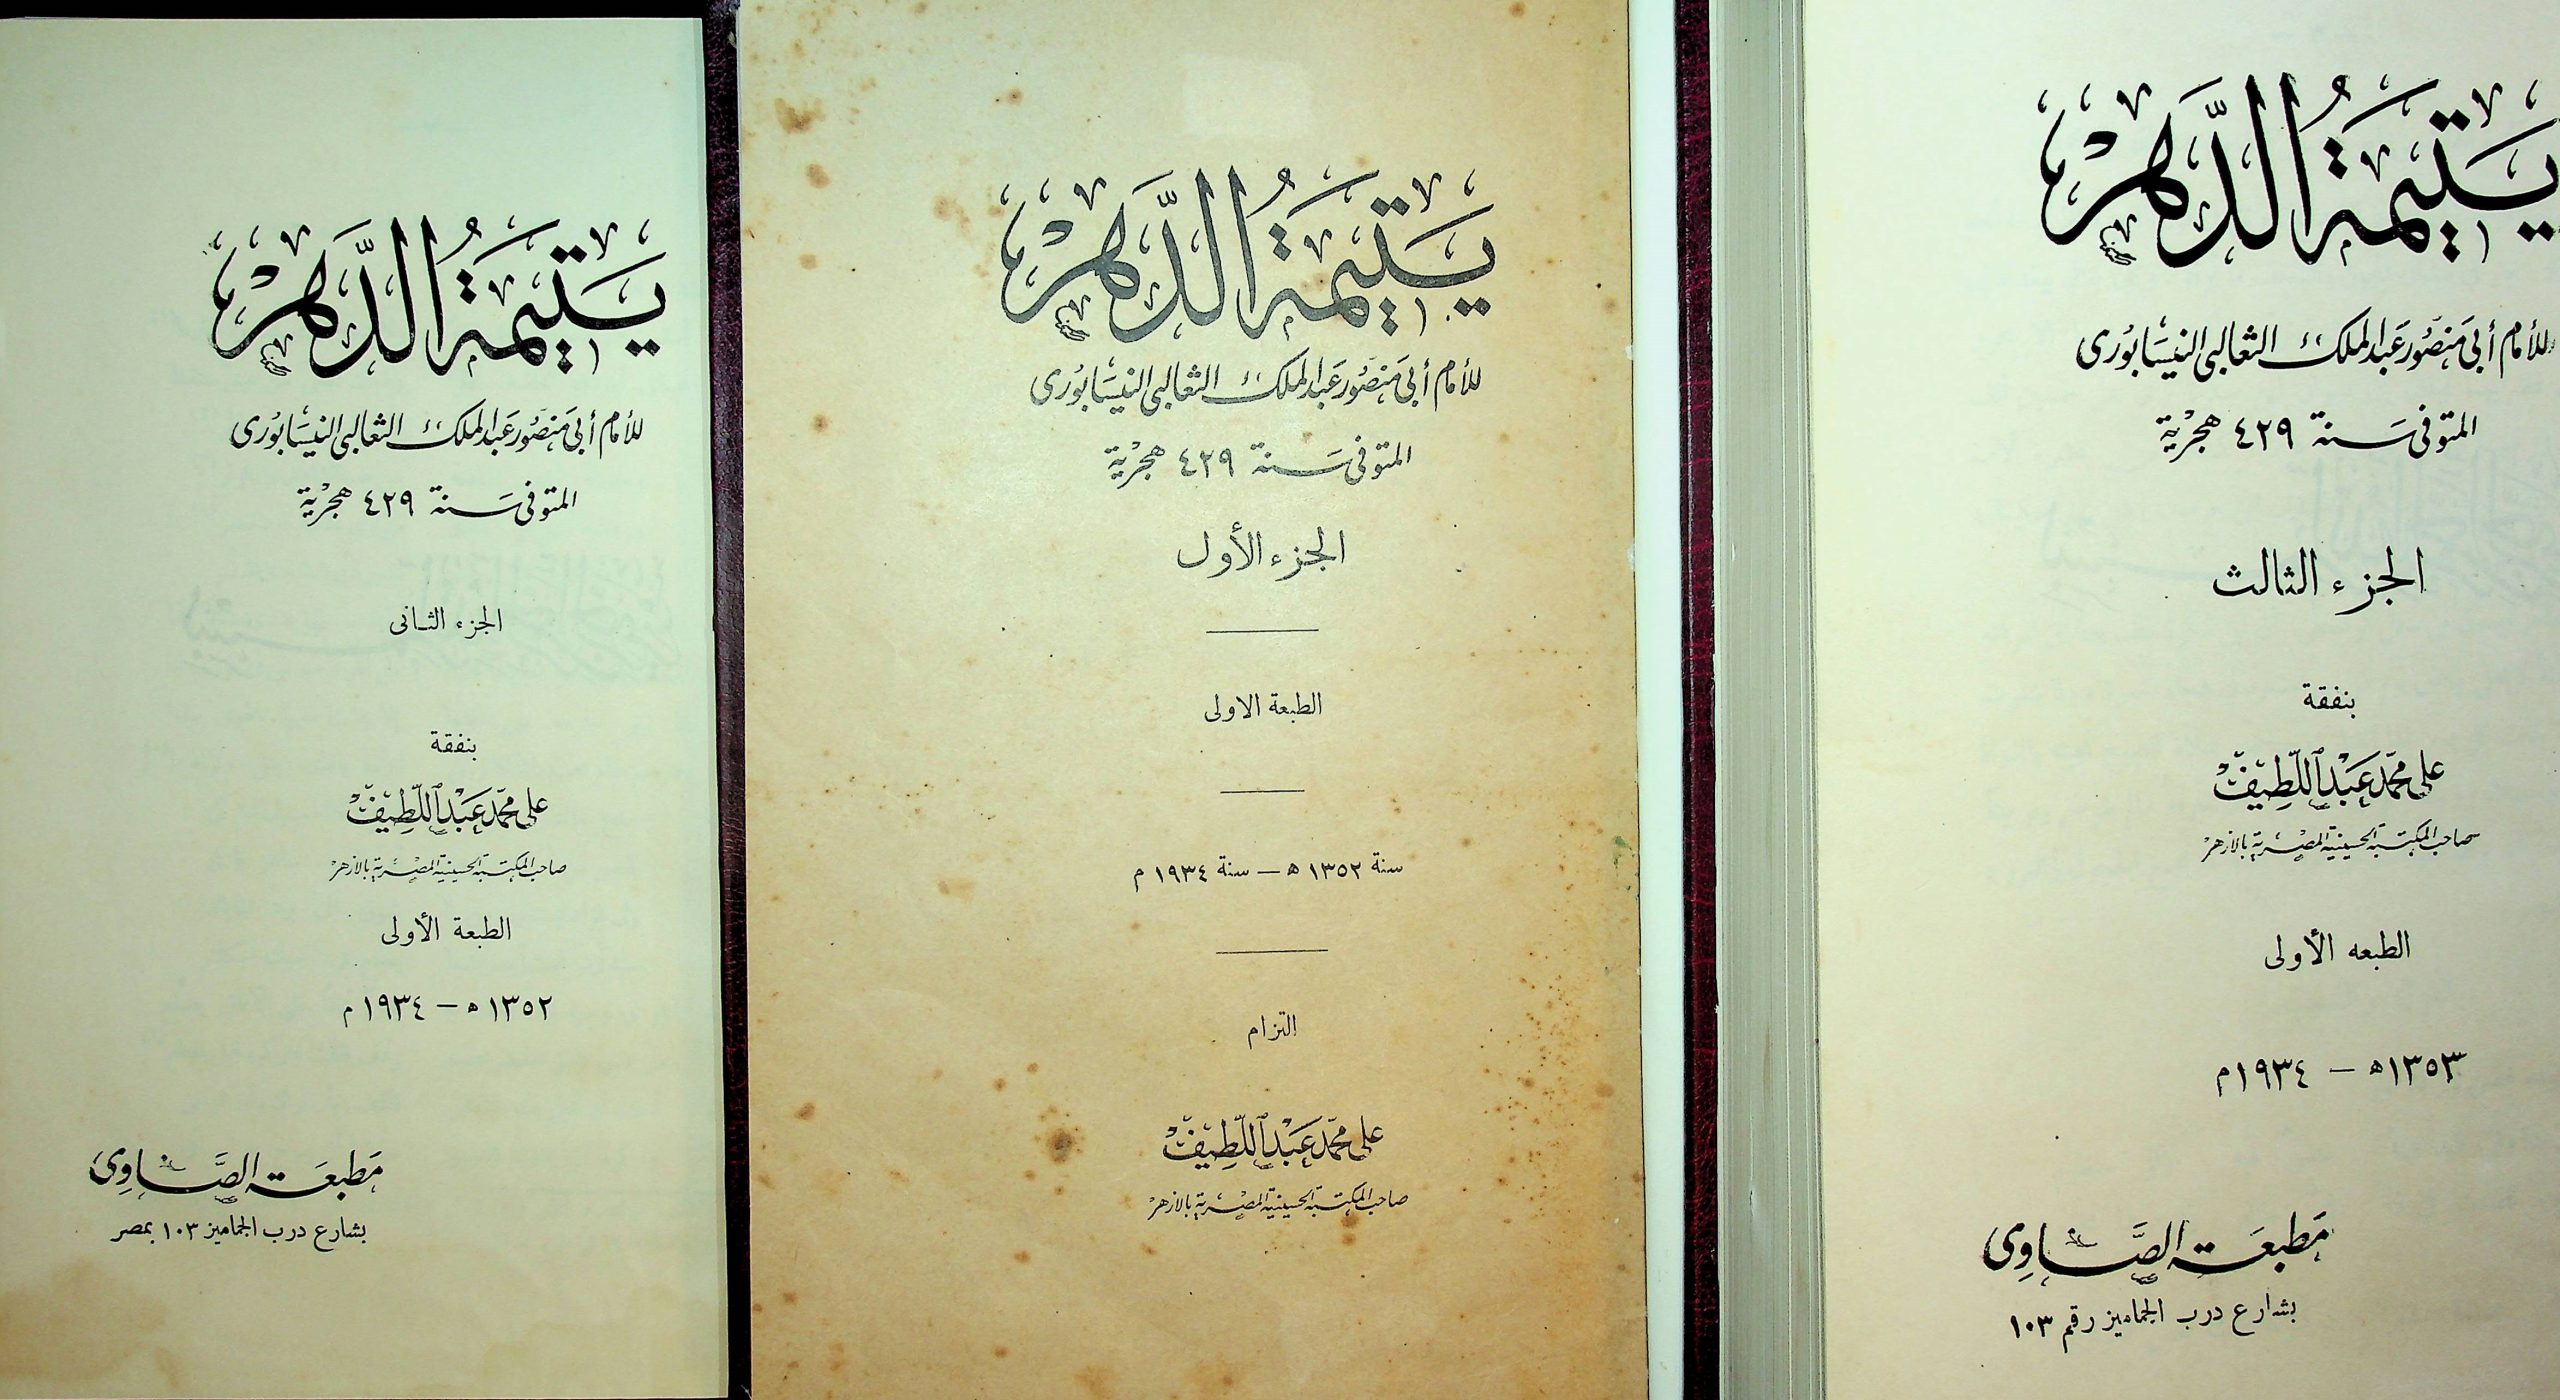 يَتيمَةُ الدَّهرْ
للأمام أبى مَنصُور عَبد الملك الثعالبى النيسَابُورى
المتوفى سَنة ٤٢٩ هجرْية
الجزء الثانى
بنفقة
على محمّد عَبْد اللّطِيفْ
صاحب المكتبة الحسينية المصْرية بالأزهرْ
الطبعة الأولى
١٣٥٢ ه – ١٩٣٤ م
مَطبعَة الصَّاوِى
بشارع درب الجماميز ١٠٣ بمصر
يَتيمَةُ الدَّهرْ
للأمام أبى مَنصُور عَبد الملك الثعالبى النيسَابُورى
المتوفى سَنة ٤٢٩ هجرْية
الجزء الأول
الطبعة الاولى
سنة ١٣٥٢ ه – سنة ١٩٣٤ م
التزام
على محمّد عَبْد اللّطِيفْ
صاحب المكتبة الحسينية المصْرية بالازهرْ
يَتيمَةُ الدَّهرْ
للأمام أبى مَنصُور عَبد الملك الثعالبى النيسَابُورى
المتوفى سَنة ٤٢٩ هجرْية
الجزء الثالث
بنفقة
على محمّد عَبْد اللّطِيفْ
صاحب المكتبة الحسينية المصْرية بالازهرْ
الطبعه الأولى
١٣٥٣ه – ١٩٣٤م
مَطبعَة الصَّاوِى
بشارع درب الجماميز رقم ١٠٣